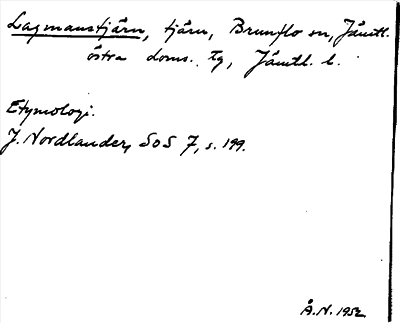 Lagmanstjärn, tjärn, Brunflo sn, Jämtl.
östra doms. tg, Jämtl. l.
Etymologi.
J. Nordlander, SOS 7, s. 199.
Å.N. 1952